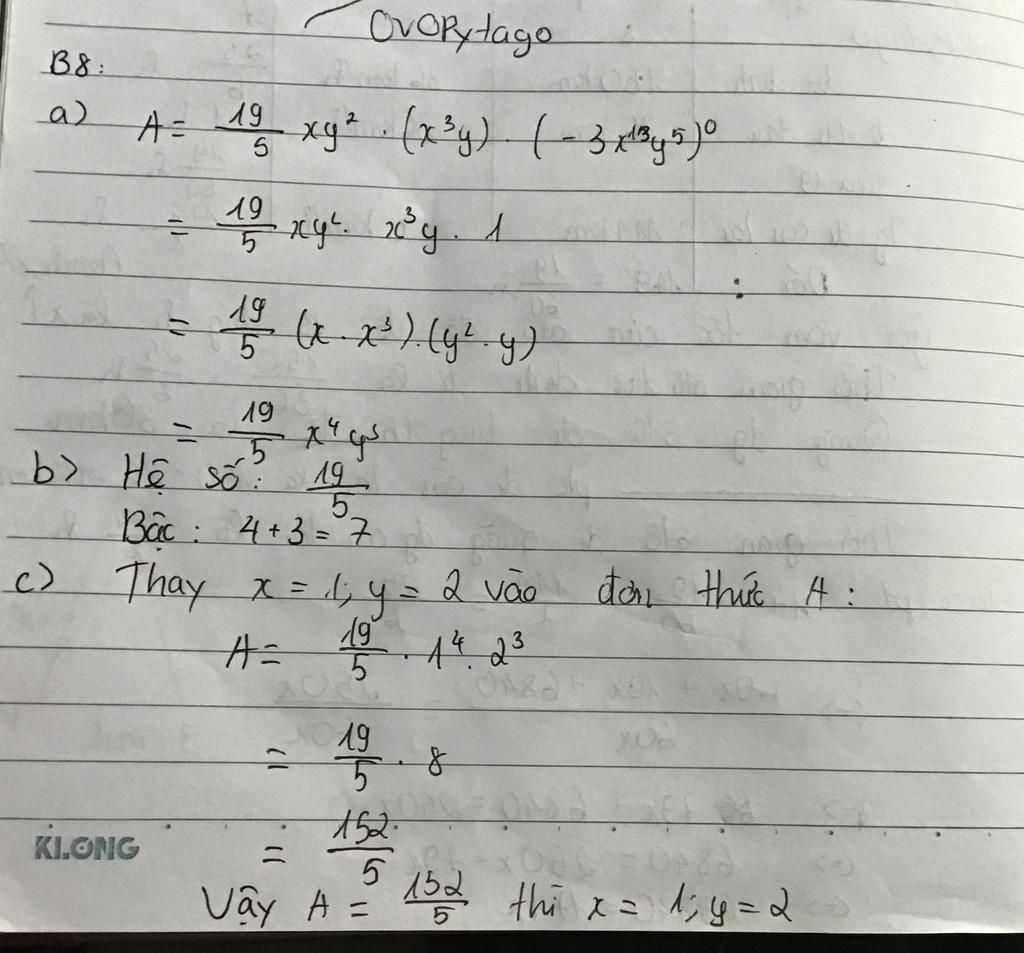 OVOPytago
B8:
a) A = 19/5 xy² . (x³y) . (-3x¹³y⁵)⁰
= 19/5 xy² . x³y . 1
= 19/5 (x . x³) . (y² . y)
= 19/5 x⁴y³
b> Hệ số: 19/5
Bậc : 4 + 3 = 7
c) Thay x = 1; y = 2 vào đơn thức A :
A = 19/5 . 1⁴ . 2³
= 19/5 . 8
= 152/5
KLONG
Vậy A = 152/5 thì x = 1; y = 2